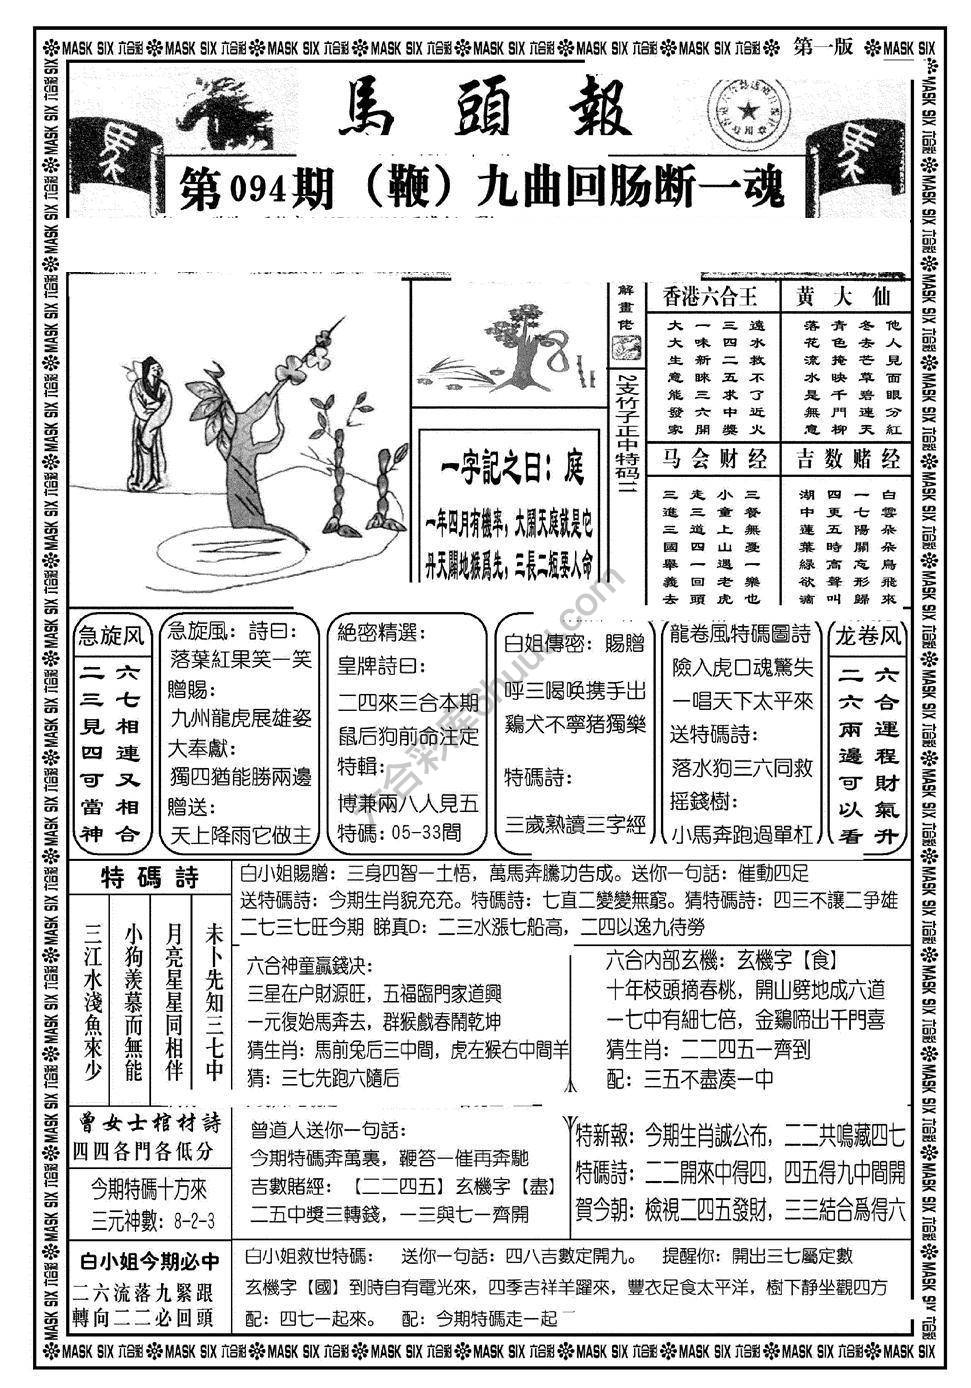 MASK SIX 六合彩 MASK SIX 六合彩 MASK SIX 六合彩 MASK SIX 六合彩 MASK SIX 六合彩 MASK SIX 六合彩 MASK SIX 六合彩 第一版 MASK SIX
馬頭報
第094期（鞭）九曲回肠断一魂
解畫佬
2支竹子正中特码11
一字記之曰：庭
一年四月有機率，大鬧天庭就是它
丹天闢地猴爲先，三長二短要人命
香港六合王
遠水救不了近火
三四二五求中獎
一味新睐三六開
大大生意能發家
黃大仙
他人見面眼分紅
冬去芒草碧連天
青色掩映千門柳
落花流水是無意
马会财经
三餐無憂一樂也
小童上山遇老虎
走三道四一回頭
三進三國舉義去
吉数赌经
白雲朵朵鳥飛來
一七陽關忘形歸
四更五時高聲叫
湖中蓮葉綠欲滴
急旋风
六七相連又相合
二三見四可當神
急旋風：詩曰：
落葉紅果笑一笑
贈賜：
九州龍虎展雄姿
大奉獻：
獨四猶能勝兩邊
贈送：
天上降雨它做主
絕密精選：
皇牌詩曰：
二四來三合本期
鼠后狗前命注定
特輯：
博兼兩八人見五
特碼：05-33間
白姐傳密：賜贈
呼三喝唤携手出
鷄犬不寧猪獨樂
特碼詩：
三歲熟讀三字經
龍卷風特碼圖詩
險入虎口魂驚失
一唱天下太平來
送特碼詩：
落水狗三六同救
摇錢樹：
小馬奔跑過單杠
龙卷风
六合運程財氣升
二六兩邊可以看
六合彩库6huuu.com
特碼詩
未卜先知三七中
月亮星星同相伴
小狗羡慕而無能
三江水淺魚來少
白小姐赐贈：三身四智一土悟，萬馬奔騰功告成。送你一句話：催動四足
送特碼詩：今期生肖貌充充。特碼詩：七直二變變無窮。猜特碼詩：四三不讓二爭雄
二七三七旺今期 睇真D：二三水漲七船高，二四以逸九待勞
六合神童贏錢决：
三星在户財源旺，五福臨門家道興
一元復始馬奔去，群猴戲春鬧乾坤
猜生肖：馬前兔后三中間，虎左猴右中間羊
猜：三七先跑六隨后
六合内部玄機：玄機字【食】
十年枝頭摘春桃，開山劈地成六道
一七中有細七倍，金鷄啼出千門喜
猜生肖：二二四五一齊到
配：三五不盡凑一中
曾女士棺材詩
四四各門各低分
今期特碼十方來
三元神數：8-2-3
曾道人送你一句話：
今期特碼奔萬裏，鞭笞一催再奔馳
吉數賭經：【二二四五】玄機字【盡】
二五中獎三轉錢，一三與七一齊開
特新報：今期生肖誠公布，二二共鳴藏四七
特碼詩：二二開來中得四，四五得九中間開
賀今朝：檢視二四五發財，三三結合爲得六
白小姐今期必中
二六流落九緊跟
轉向二二必回頭
白小姐救世特碼： 送你一句話：四八吉數定開九。 提醒你：開出三七屬定數
玄機字【國】到時自有電光來，四季吉祥羊躍來，豐衣足食太平洋，樹下静坐觀四方
配：四七一起來。 配：今期特碼走一起
MASK SIX 六合彩 MASK SIX 六合彩 MASK SIX 六合彩 MASK SIX 六合彩 MASK SIX 六合彩 MASK SIX 六合彩 MASK SIX 六合彩 MASK SIX 六合彩 MASK SIX